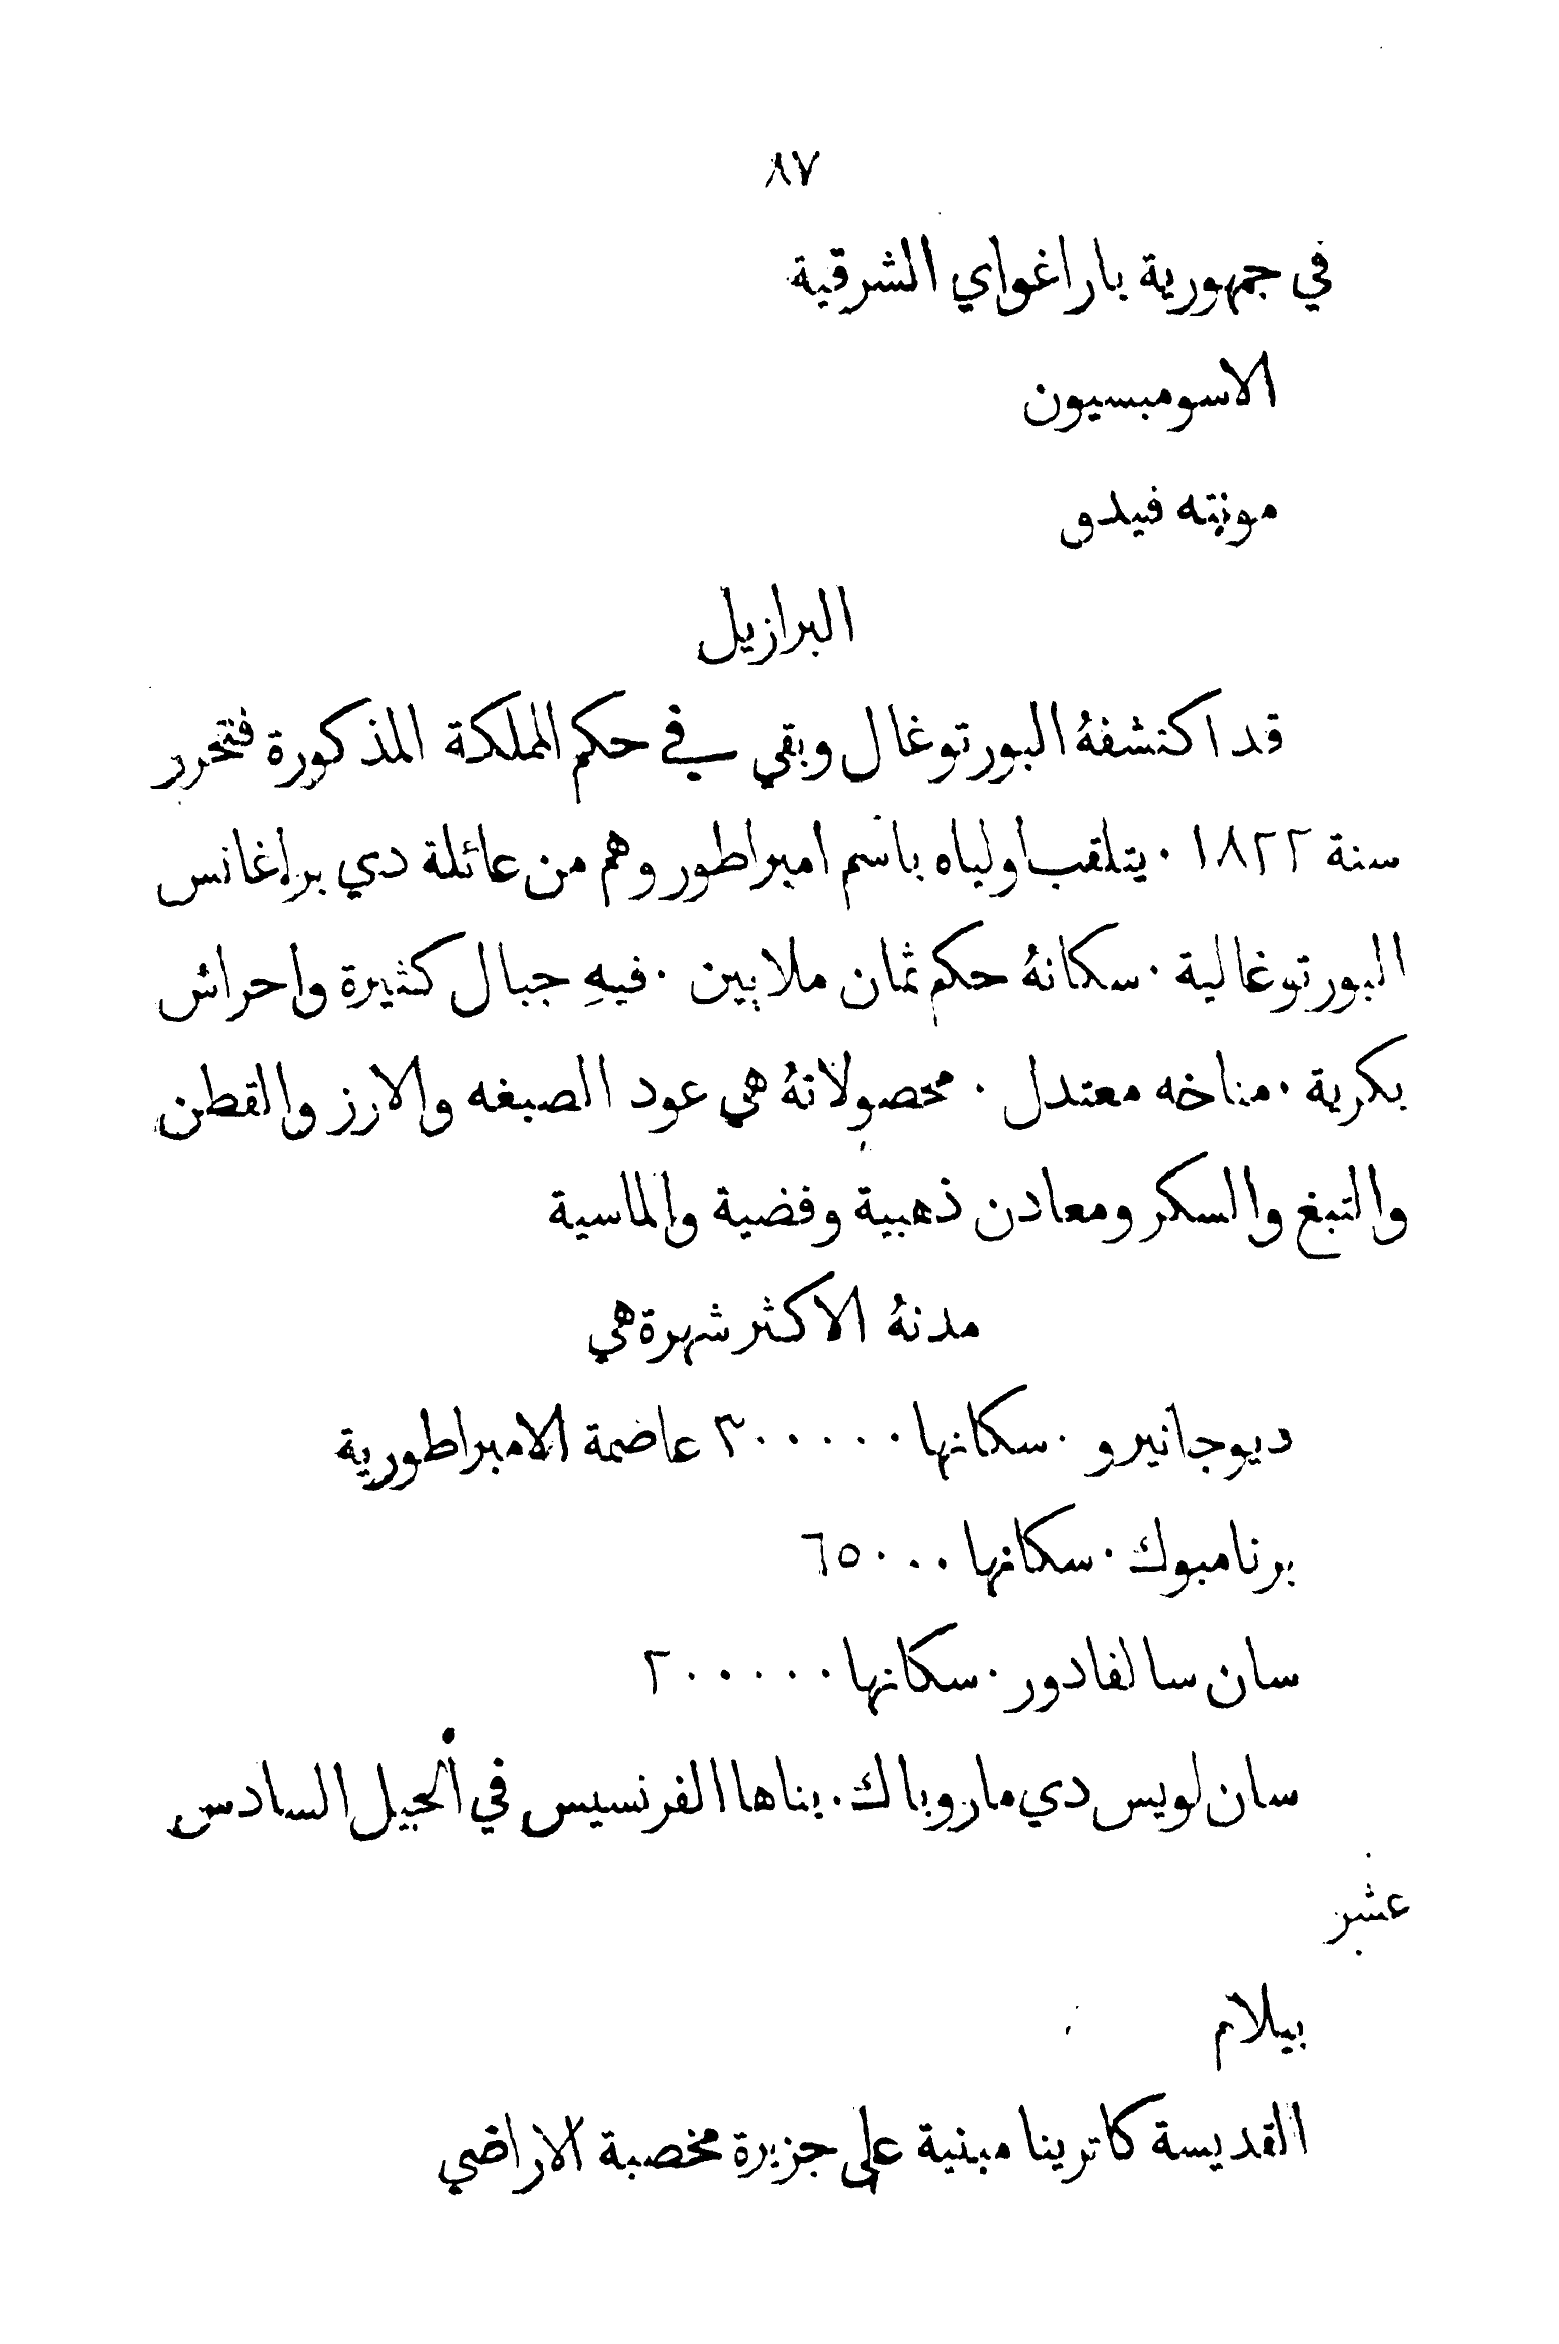 ٨٧
في جمهورية باراغواي الشرقية
الاسومبسيون
مونته فيدو
البرازيل
قد اكتشفهُ البورتوغال وبقي في حكم المملكة المذكورة فتحرر
سنة ١٨٢٢ . يتلقب اولياه باسم امبراطور وهم من عائلة دي براغانس
البورتوغالية . سكانهُ حكم ثمان ملايين . فيهِ جبال كثيرة واحراش
بكرية . مناخه معتدل . محصولاتهُ هي عود الصبغه والارز والقطن
والتبغ والسكر ومعادن ذهبية وفضية والماسية
مدنهُ الاكثر شهرة هي
ديوجانيرو . سكانها ٣٠٠٠٠٠ عاضمة الامبراطورية
برنامبوك . سكانها ٦٥٠٠٠
سان سالفادور . سكانها ٢٠٠٠٠٠
سان لويس دي ماروباك . بناها الفرنسيس في الجيل السادس
عشر
بيلام
القديسة كاترينا مبنية على جزيرة مخصبة الاراضي